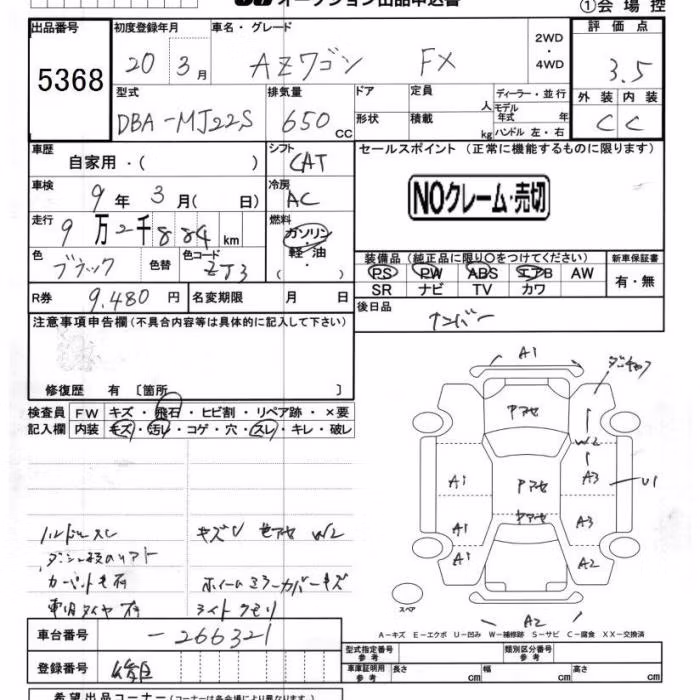 オークション出品申込書
①会場控
出品番号
5368
初度登録年月
20 年 3 月
車名・グレード
AZワゴン FX
2WD
・
4WD
評価点
3.5
型式
DBA-MJ22S
排気量
650 CC
ドア
形状
定員
人
積載
kg
ディーラー・並行
モデル年式 年
ハンドル 左・右
外装 内装
C C
車歴
自家用・( )
シフト
CAT
セールスポイント (正常に機能するものに限ります)
NOクレーム・売切
車検
9 年 3 月( 日)
冷房
AC
走行
9万2千884 km
燃料
ガソリン
・
軽油
( ・ )
色
ブラック
色替
色コード
ZJ3
装備品(純正品に限り○をつけてください)
PS PW ABS エアB AW
SR ナビ TV カワ
新車保証書
有・無
R券
9.480 円
名変期限 月 日
後日品
ナンバー
注意事項申告欄(不具合内容等は具体的に記入して下さい)
修復歴 有 〔箇所 〕
検査員
記入欄
FW キズ・飛石・ヒビ割・リペア跡・×要
内装 キズ・汚レ・コゲ・穴・スレ・キレ・破レ
ハンドルスレ
キズU 色アセ W2
カーペット
ホイールミラーカバーキズ
ライトクモリ
A1
アアセ
W2
A1
アアセ
A3
U1
アアセ
A1
A3
A1
A2
A2
スペア
A-キズ E-エクボ U-凹み W-補修跡 S-サビ C-腐食 XX-交換済
車台番号
-266321
登録番号
型式指定番号
参考
類別区分番号
参考
車庫証明用
参考
長さ cm
幅 cm
高さ cm
希望出品コーナー(コーナーは各会場により異なります。)